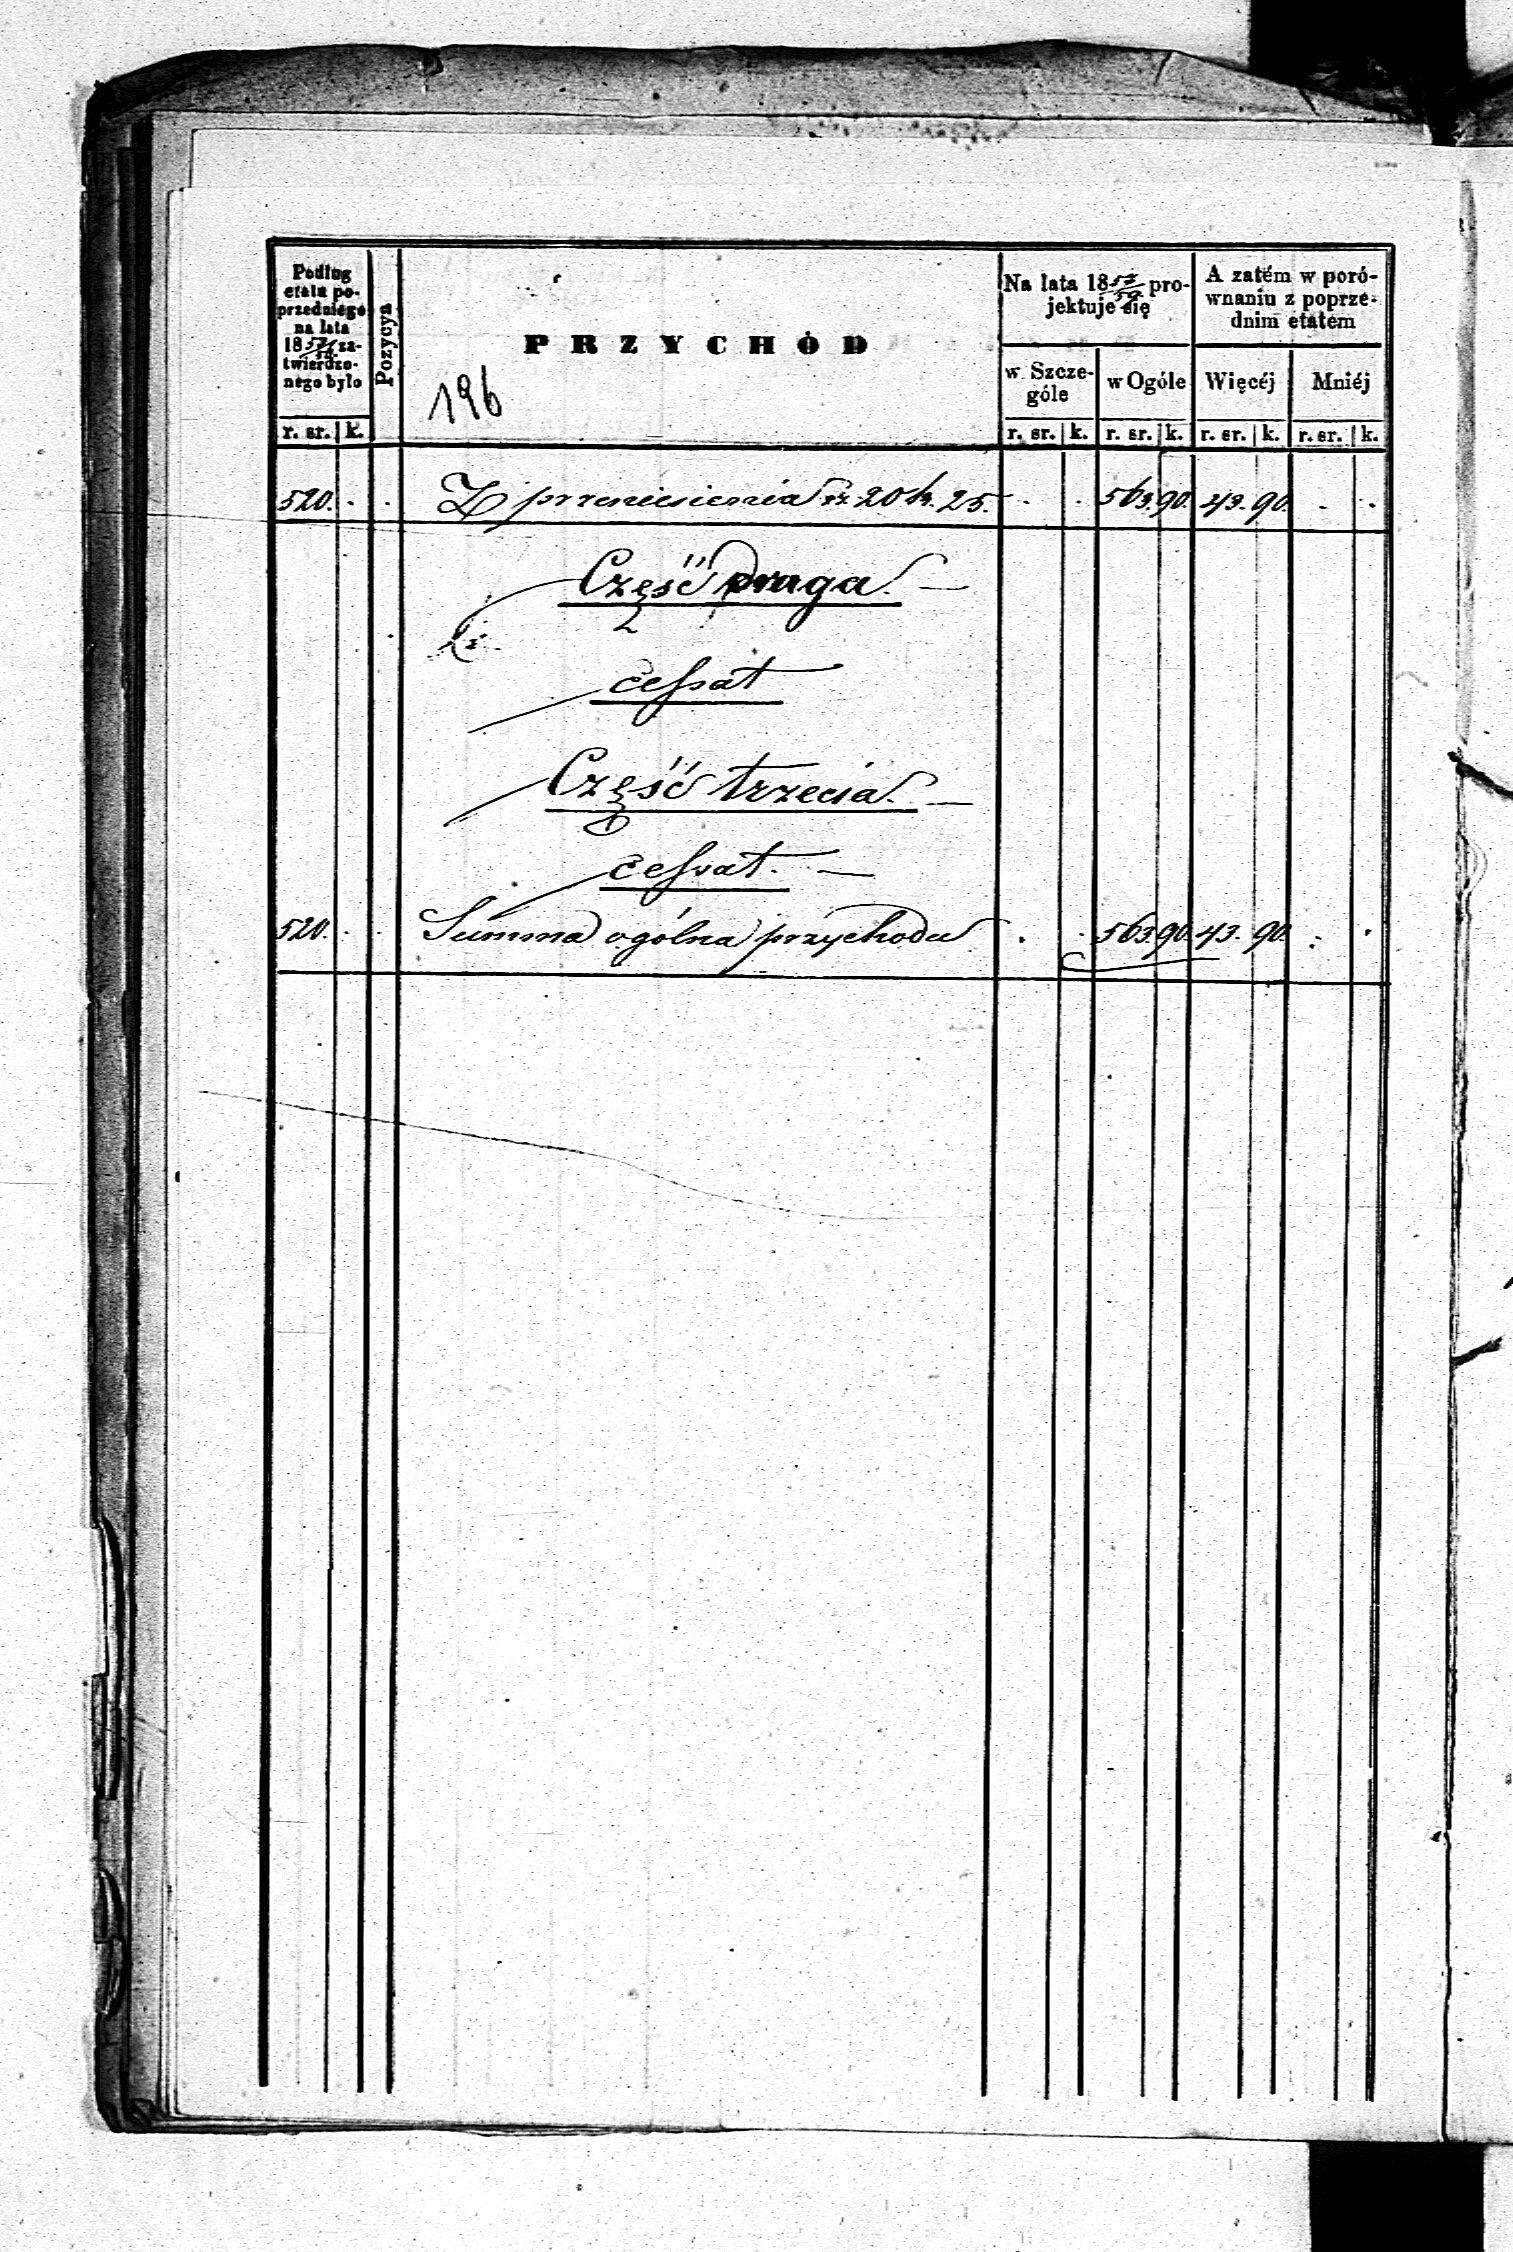 Podług
etatu po-
przedniego
na lata
18 za-
twierdzo-
nego było
r. sr. k.
Pozycya
PRZYCHÓD
196
Na lata 18 57/59 pro-
jektuje się
w Szcze-
góle
r. sr. k.
w Ogóle
r. sr. k.
A zatém w poró-
wnaniu z poprze-
dnim etatem
Więcéj
r. sr. k.
Mniéj
r. sr. k.
520. Z przeniesienia rs 20 k. 25. 563. 90. 43. 90.
Część druga. —
cessat
Część trzecia. —
cessat. —
520. Summa ogólna przychodu 563. 90. 43. 90.